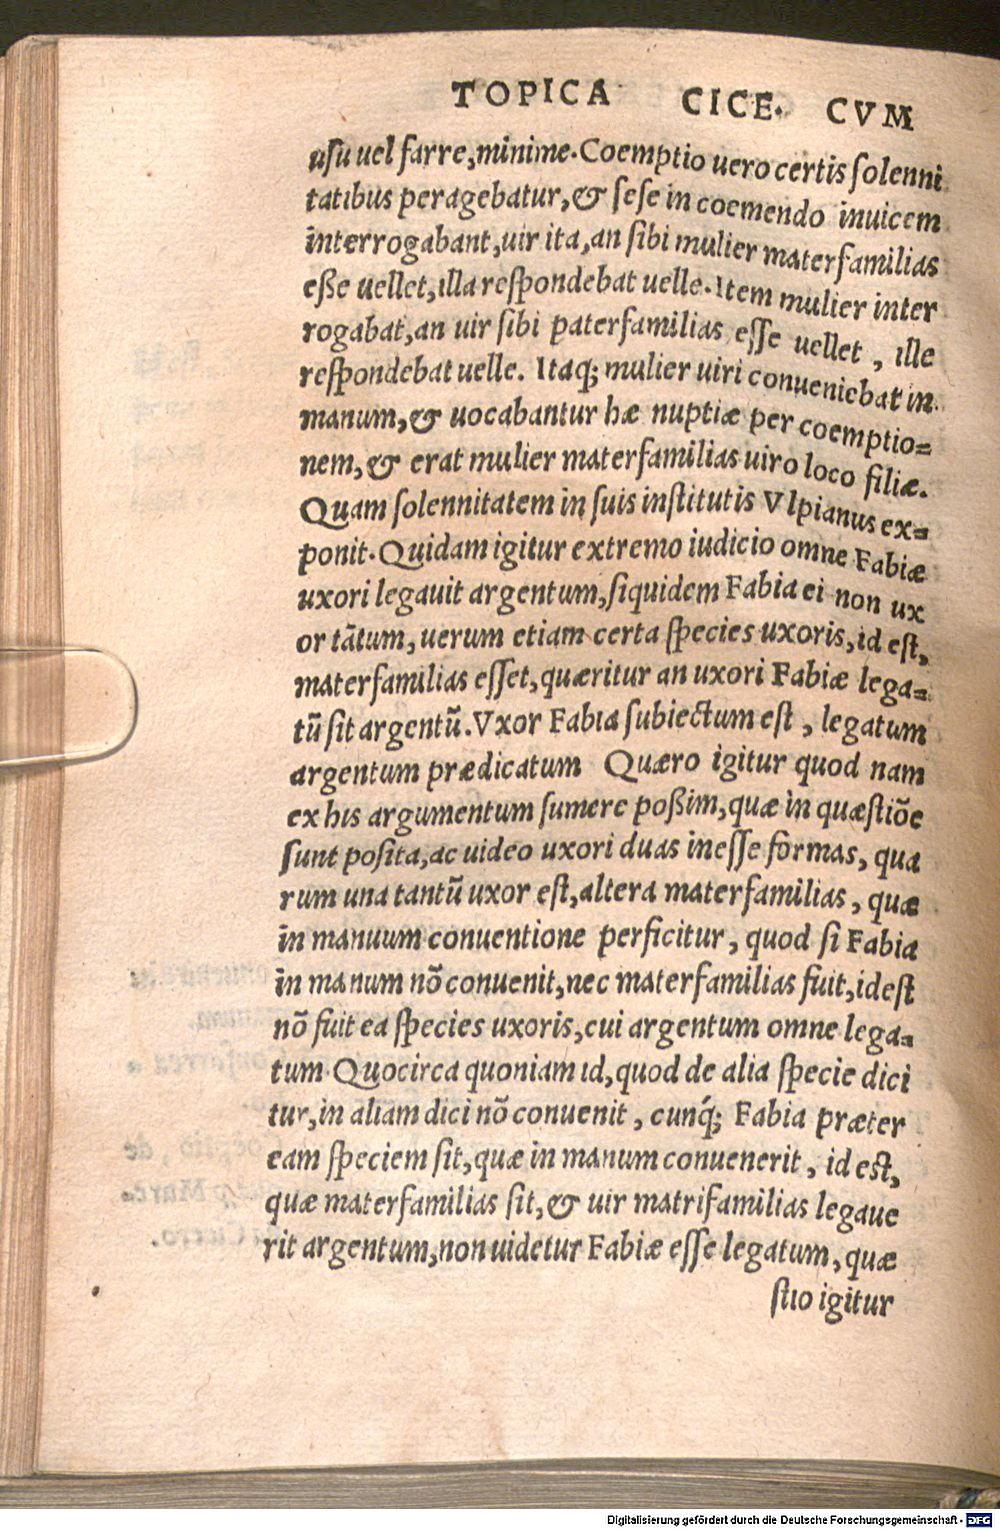 TOPICA CICE. CVM
usu uel farre, minime. Coemptio uero certis solenni
tatibus peragebatur, & sese in coemendo inuicem
interrogabant, uir ita, an sibi mulier materfamilias
eße uellet, illa respondebat uelle. Item mulier inter
rogabat, an uir sibi paterfamilias esse uellet, ille
respondebat uelle. Itaq; mulier uiri conueniebat in
manum, & uocabantur hæ nuptiæ per coemptio=
nem, & erat mulier materfamilias uiro loco filiæ.
Quam solennitatem in suis institutis Vlpianus ex=
ponit. Quidam igitur extremo iudicio omne Fabiæ
uxori legauit argentum, siquidem Fabia ei non ux
or tãtum, uerum etiam certa species uxoris, id est,
materfamilias esset, quæritur an uxori Fabiæ lega=
tũ sit argentũ. Vxor Fabia subiectum est, legatum
argentum prædicatum Quæro igitur quod nam
ex his argumentum sumere poßim, quæ in quæstiõe
sunt posita, ac uideo uxori duas inesse formas, qua
rum una tantũ uxor est, altera materfamilias, quæ
in manuum conuentione perficitur, quod si Fabia
in manum nõ conuenit, nec materfamilias fuit, idest
nõ fuit ea species uxoris, cui argentum omne lega=
tum. Quocirca quoniam id, quod de alia specie dici
tur, in aliam dici nõ conuenit, cunq́; Fabia præter
eam speciem sit, quæ in manum conuenerit, id est,
quæ materfamilias sit, & uir matrifamilias legaue
rit argentum, non uidetur Fabiæ esse legatum, quæ
stio igitur
Digitalisierung gefördert durch die Deutsche Forschungsgemeinschaft - DFG